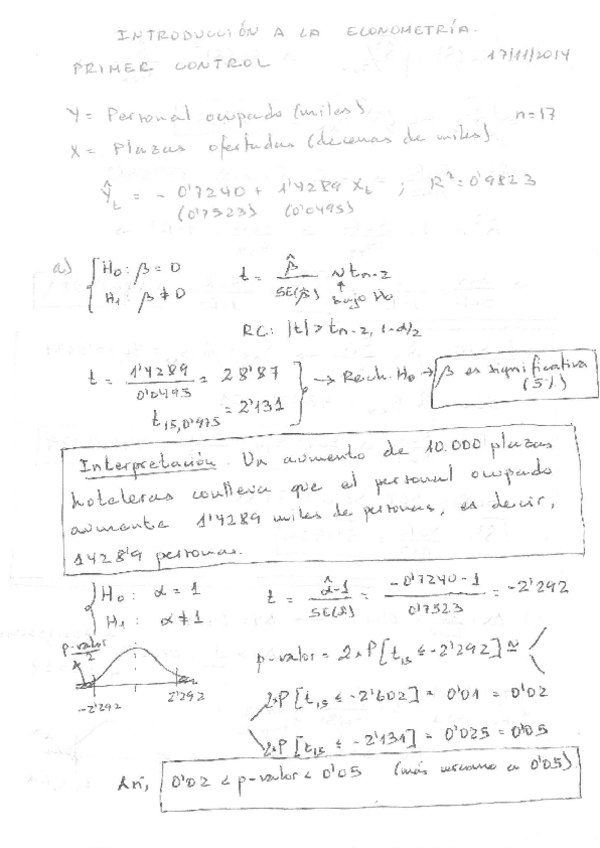 INTRODUCCIÓN A LA ECONOMETRÍA.
PRIMER CONTROL 17/11/2014
Y = Personal ocupado (miles) n=17
X = Plazas ofertadas (decenas de miles)
Ŷt = - 0'7240 + 1'4289 Xt ; R² = 0'9823
(0'7523) (0'0495)
a) { H0: β = 0 t = β̂ / SE(β̂) ~ tn-2
H1 β ≠ 0 bajo H0
RC: |t| > tn-2, 1-α/2
t = 1'4289 / 0'0495 = 28'87 } → Rech. H0 → β es significativa
t15,0'975 = 2'131 (5%)
Interpretación. Un aumento de 10.000 plazas
hoteleras conlleva que el personal ocupado
aumenta 1'4289 miles de personas, es decir,
1428'9 personas.
{ H0: α = 1 t = α̂-1 / SE(α̂) = -0'7240-1 / 0'7523 = -2'292
H1: α ≠ 1
p-valor / 2 p-valor = 2×P[t15 ≤ -2'292] ≈
-2'292 2'292
2×P[t15 ≤ -2'602] = 0'01 = 0'02
2×P[t15 ≤ -2'131] = 0'025 = 0'05
Así, 0'02 < p-valor < 0'05 (más cercano a 0'05)